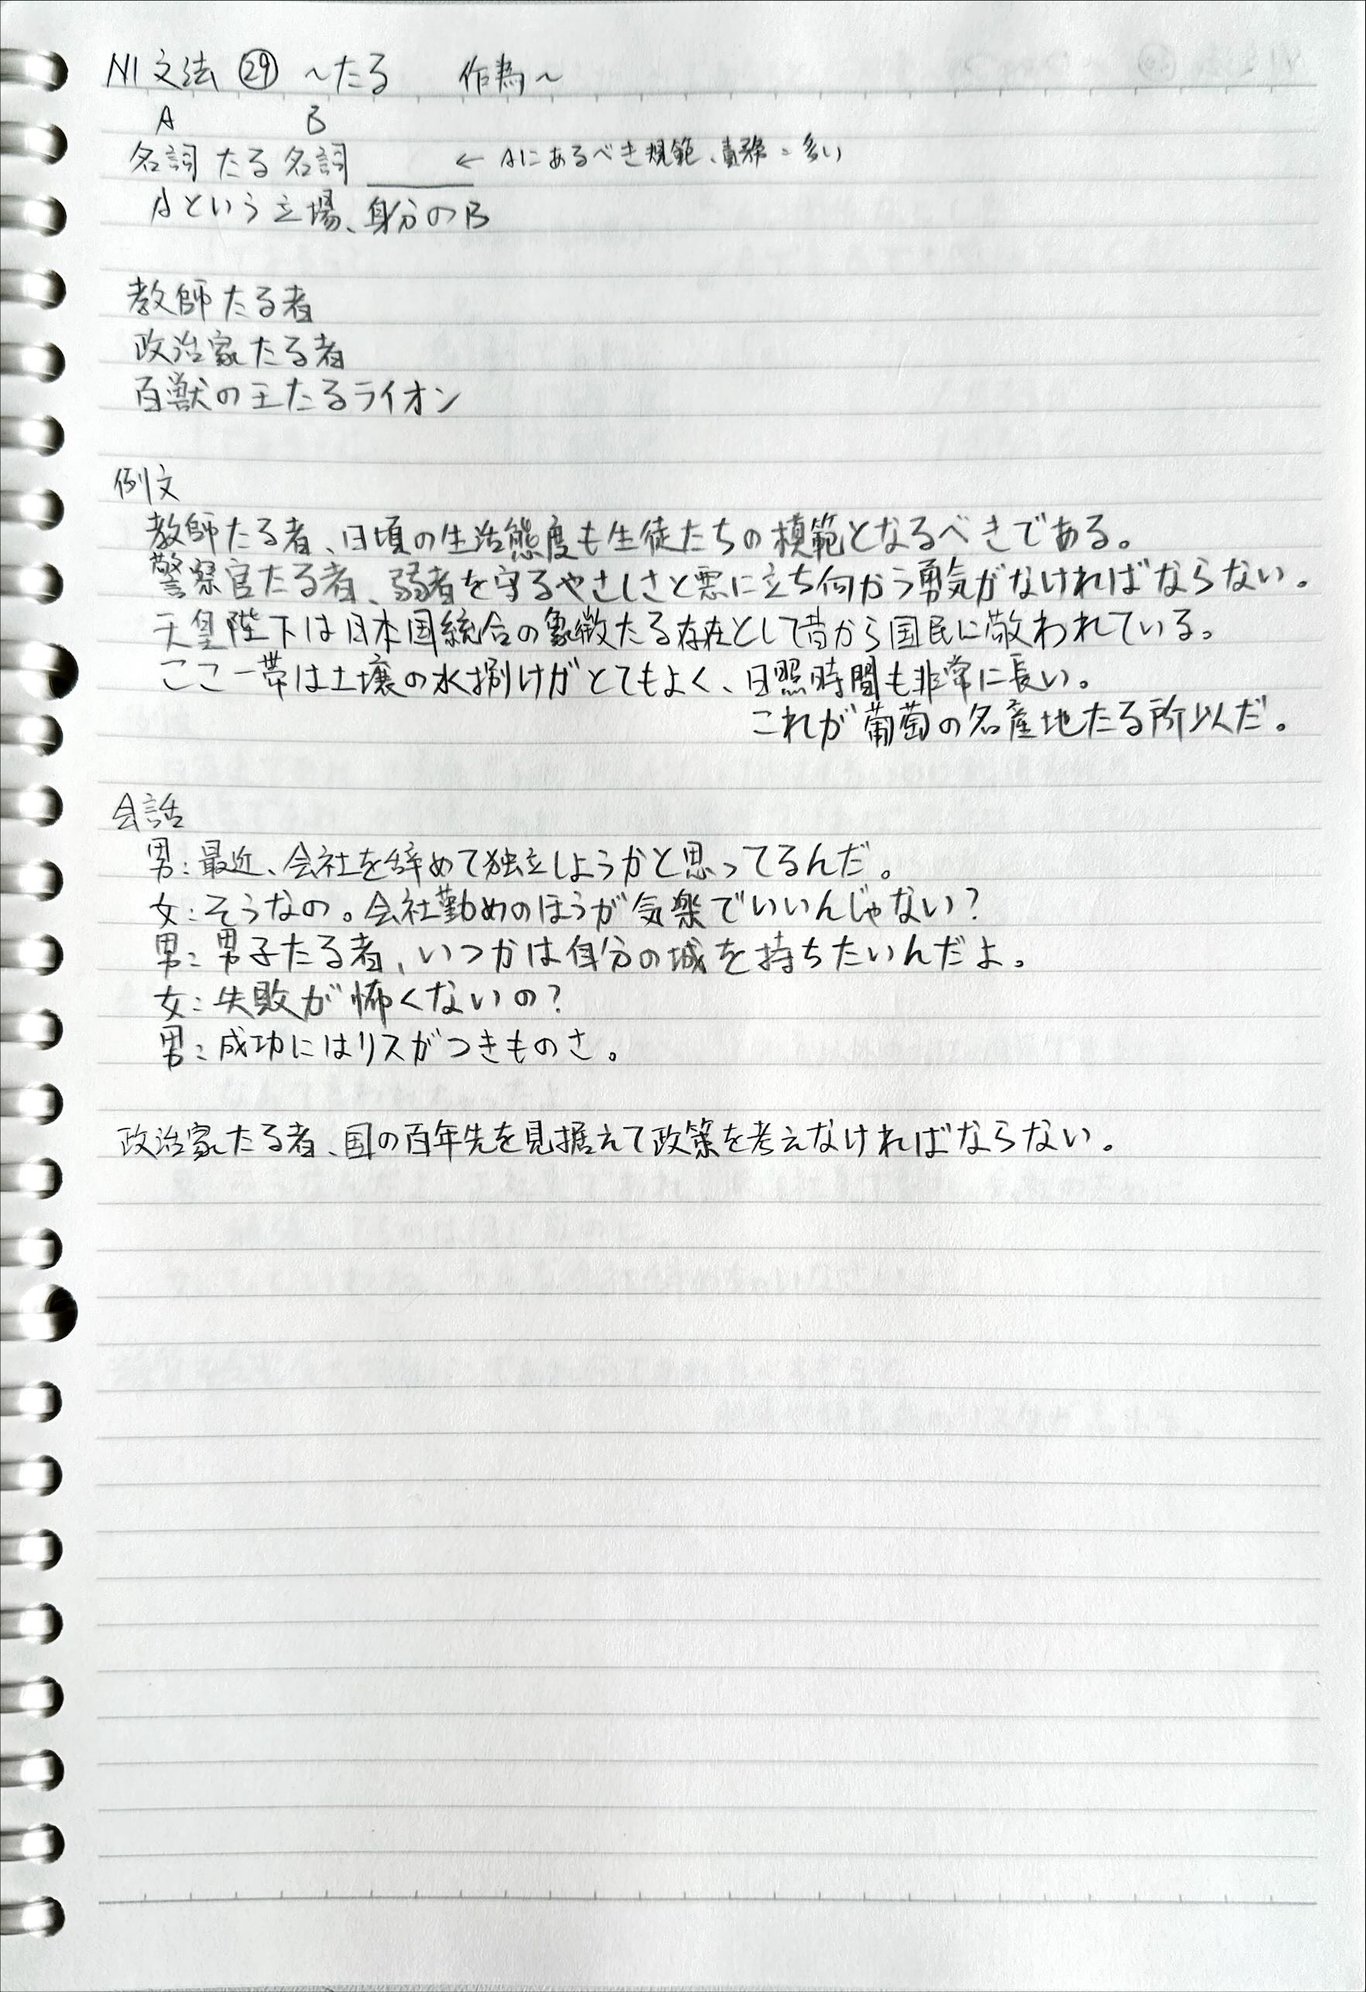 N1 文法 ㉙ ～たる 作為～
A B
名詞 たる 名詞 ＿＿＿ ← Aにあるべき規範、責務 = 多い
Aという立場、身分のB
教師たる者
政治家たる者
百獣の王たるライオン
例文
教師たる者、日頃の生活態度も生徒たちの模範となるべきである。
警察官たる者、弱者を守るやさしさと悪に立ち向かう勇気がなければならない。
天皇陛下は日本国統合の象徴たる存在として昔から国民に敬われている。
ここ一帯は土壌の水捌けがとてもよく、日照時間も非常に長い。
これが葡萄の名産地たる所以だ。
会話
男：最近、会社を辞めて独立しようかと思ってるんだ。
女：そうなの。会社勤めのほうが気楽でいいんじゃない？
男：男子たる者、いつかは自分の城を持ちたいんだよ。
女：失敗が怖くないの？
男：成功にはリスがつきものさ。
政治家たる者、国の百年先を見据えて政策を考えなければならない。